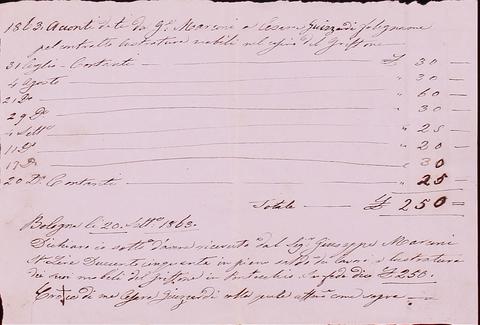 1863. Aconti dati da Gi. Marconi a Cesare Guizzardi falegname
pel contratto lustratura mobili nel casino del Griffone
31 Luglio - Contante — ₤ 30 —
4 Agosto — " 30 —
21 Do — " 60 —
29 Do — " 30 —
4 Sette — " 25 —
11 Do — " 20 —
17 Do — " 30
20 Do Contante — " 25 —
Totale — ₤ 250 =
Bologna li 20 Sette 1863.
Dichiaro io sotto di avere ricevuto dal Sigr Giuseppe Marconi
Lire Duecento cinquanta in pieno saldo di lavori e lustratura
dei suoi mobili del Griffone in fede dico ₤ 250.
Croce di me Cesare Guizzardi alla quale affermo come sopra